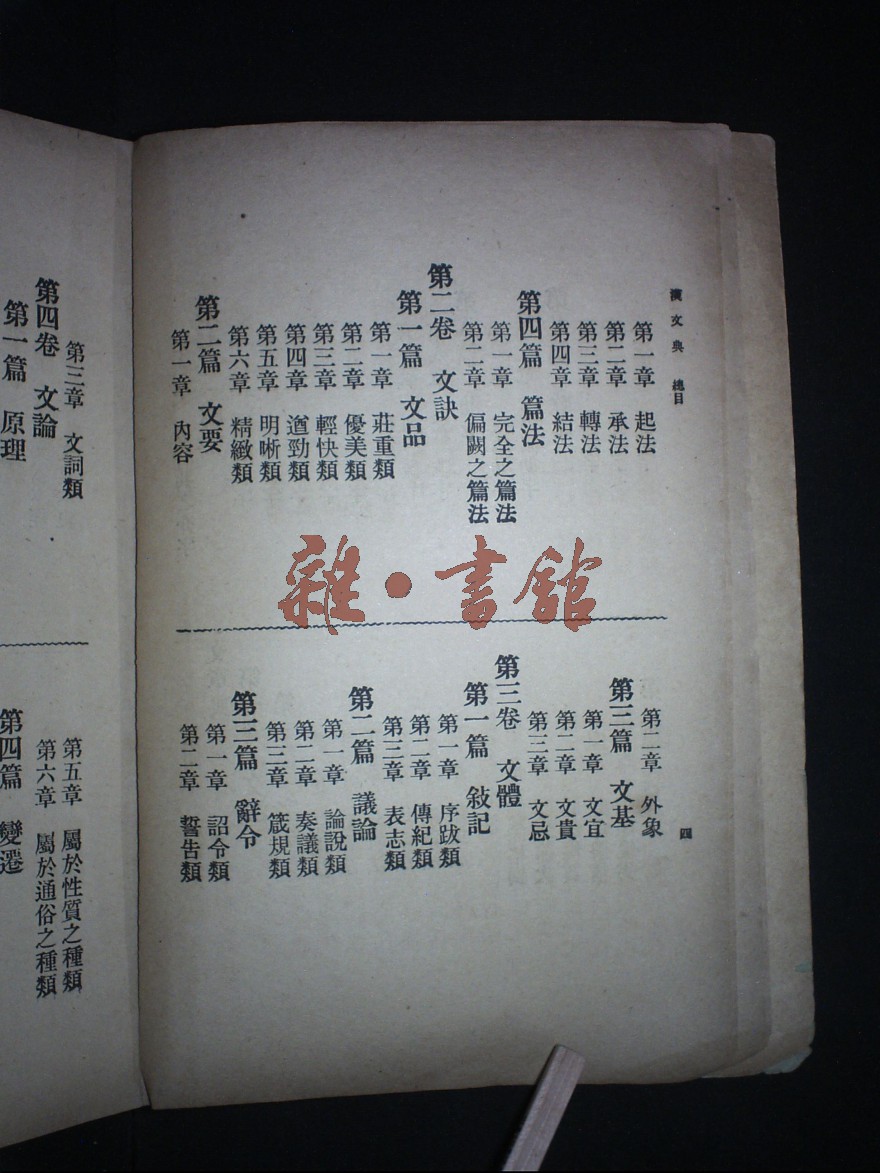 漢文典 總目
第一章 起法
第二章 承法
第三章 轉法
第四章 結法
第四篇 篇法
第一章 完全之篇法
第二章 偏闕之篇法
第二卷 文訣
第一篇 文品
第一章 莊重類
第二章 優美類
第三章 輕快類
第四章 遒勁類
第五章 明晰類
第六章 精緻類
第二篇 文要
第一章 內容
四
第二章 外象
第三篇 文基
第一章 文宜
第二章 文貴
第三章 文忌
第三卷 文體
第一篇 敍記
第一章 序跋類
第二章 傳紀類
第三章 表志類
第二篇 議論
第一章 論說類
第二章 奏議類
第三章 箴規類
第三篇 辭令
第一章 詔令類
第二章 誓告類
第三章 文詞類
第四卷 文論
第一篇 原理
第五章 屬於性質之種類
第六章 屬於通俗之種類
第四篇 變遷
雜·書館